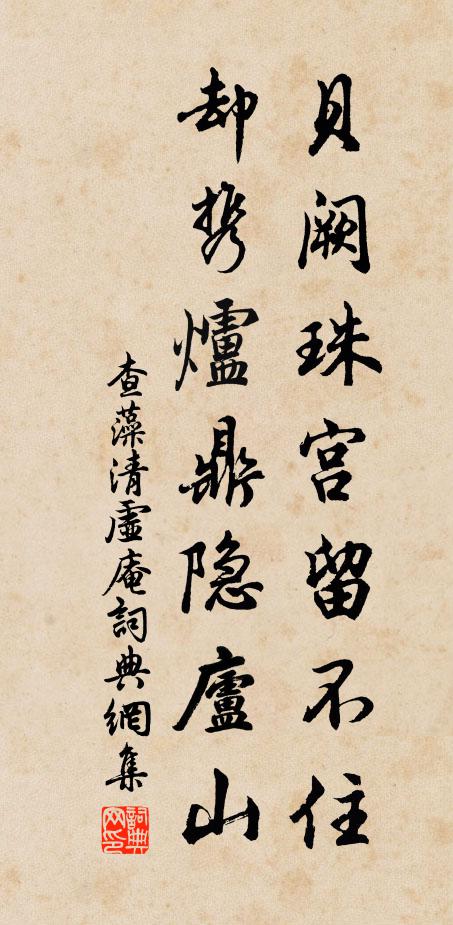 貝闕珠宮留不住
却携爐鼎隐廬山
查藻清虛庵詞典網集
詞典網印